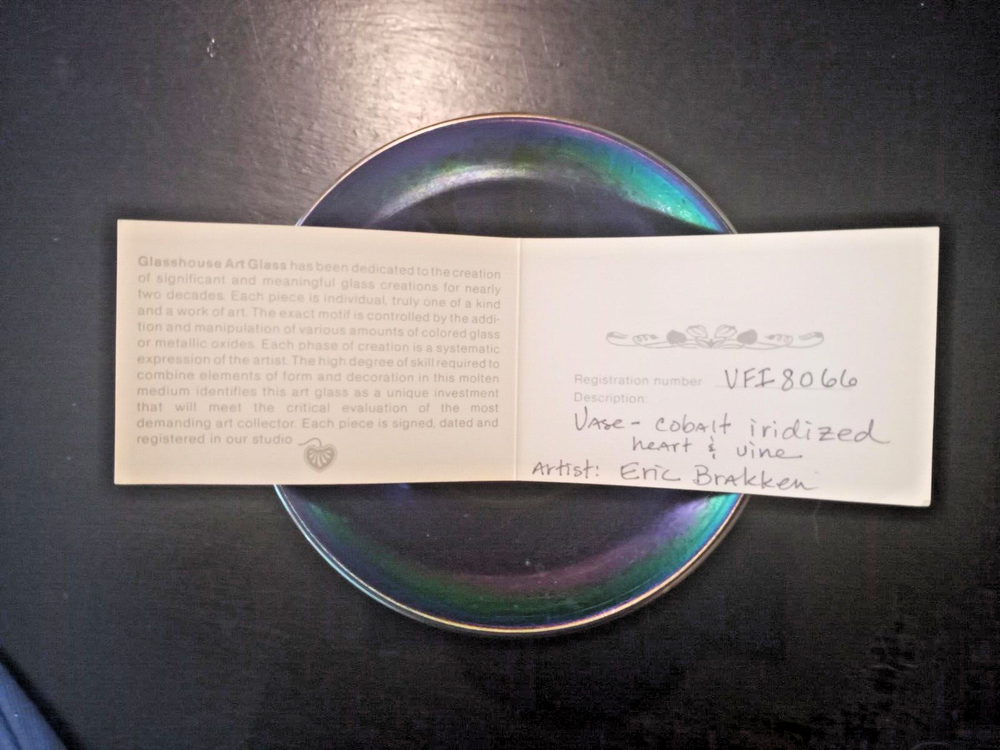 Glasshouse Art Glass has been dedicated to the creation
of significant and meaningful glass creations for nearly
two decades. Each piece is individual, truly one of a kind
and a work of art. The exact motif is controlled by the addi-
tion and manipulation of various amounts of colored glass
or metallic oxides. Each phase of creation is a systematic
expression of the artist. The high degree of skill required to
combine elements of form and decoration in this molten
medium identifies this art glass as a unique investment
that will meet the critical evaluation of the most
demanding art collector. Each piece is signed, dated and
registered in our studio
Registration number VFI8066
Description:
Vase - cobalt iridized
heart & vine
Artist: Eric Brakken